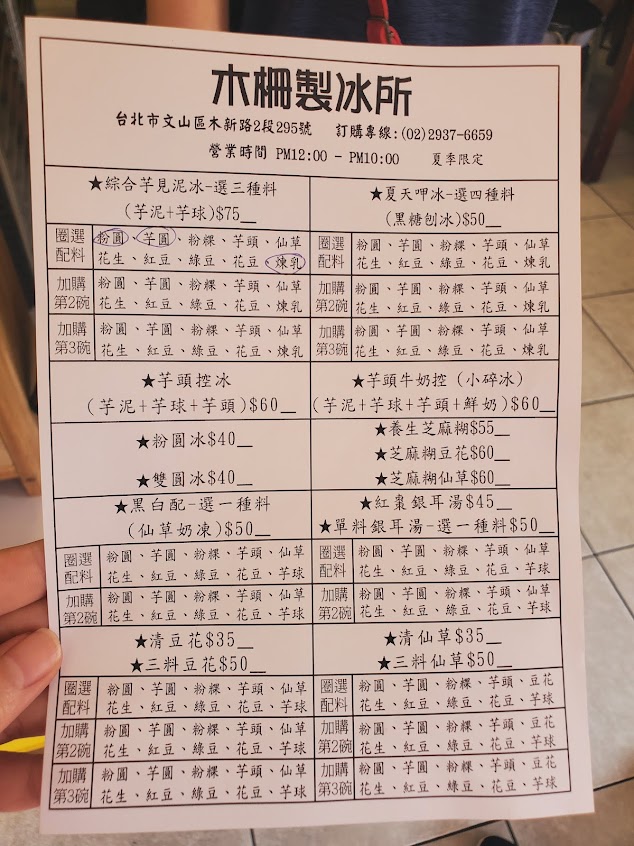 木柵製冰所
台北市文山區木新路2段295號 訂購專線:(02)2937-6659
營業時間 PM12:00 - PM10:00 夏季限定
★綜合芋見泥冰-選三種料
(芋泥+芋球)$75__
圈選配料
粉圓、芋圓、粉粿、芋頭、仙草
花生、紅豆、綠豆、花豆、煉乳
加購第2碗
粉圓、芋圓、粉粿、芋頭、仙草
花生、紅豆、綠豆、花豆、煉乳
加購第3碗
粉圓、芋圓、粉粿、芋頭、仙草
花生、紅豆、綠豆、花豆、煉乳
★夏天呷冰-選四種料
(黑糖刨冰)$50__
圈選配料
粉圓、芋圓、粉粿、芋頭、仙草
花生、紅豆、綠豆、花豆、煉乳
加購第2碗
粉圓、芋圓、粉粿、芋頭、仙草
花生、紅豆、綠豆、花豆、煉乳
加購第3碗
粉圓、芋圓、粉粿、芋頭、仙草
花生、紅豆、綠豆、花豆、煉乳
★芋頭控冰
(芋泥+芋球+芋頭)$60__
★芋頭牛奶控 (小碎冰)
(芋泥+芋球+芋頭+鮮奶)$60__
★粉圓冰$40__
★雙圓冰$40__
★養生芝麻糊$55__
★芝麻糊豆花$60__
★芝麻糊仙草$60__
★黑白配-選一種料
(仙草奶凍)$50__
圈選配料
粉圓、芋圓、粉粿、芋頭、仙草
花生、紅豆、綠豆、花豆、芋球
加購第2碗
粉圓、芋圓、粉粿、芋頭、仙草
花生、紅豆、綠豆、花豆、芋球
★紅棗銀耳湯$45__
★單料銀耳湯-選一種料$50__
圈選配料
粉圓、芋圓、粉粿、芋頭、仙草
花生、紅豆、綠豆、花豆、芋球
加購第2碗
粉圓、芋圓、粉粿、芋頭、仙草
花生、紅豆、綠豆、花豆、芋球
★清豆花$35__
★三料豆花$50__
圈選配料
粉圓、芋圓、粉粿、芋頭、仙草
花生、紅豆、綠豆、花豆、芋球
加購第2碗
粉圓、芋圓、粉粿、芋頭、仙草
花生、紅豆、綠豆、花豆、芋球
加購第3碗
粉圓、芋圓、粉粿、芋頭、仙草
花生、紅豆、綠豆、花豆、芋球
★清仙草$35__
★三料仙草$50__
圈選配料
粉圓、芋圓、粉粿、芋頭、豆花
花生、紅豆、綠豆、花豆、芋球
加購第2碗
粉圓、芋圓、粉粿、芋頭、豆花
花生、紅豆、綠豆、花豆、芋球
加購第3碗
粉圓、芋圓、粉粿、芋頭、豆花
花生、紅豆、綠豆、花豆、芋球